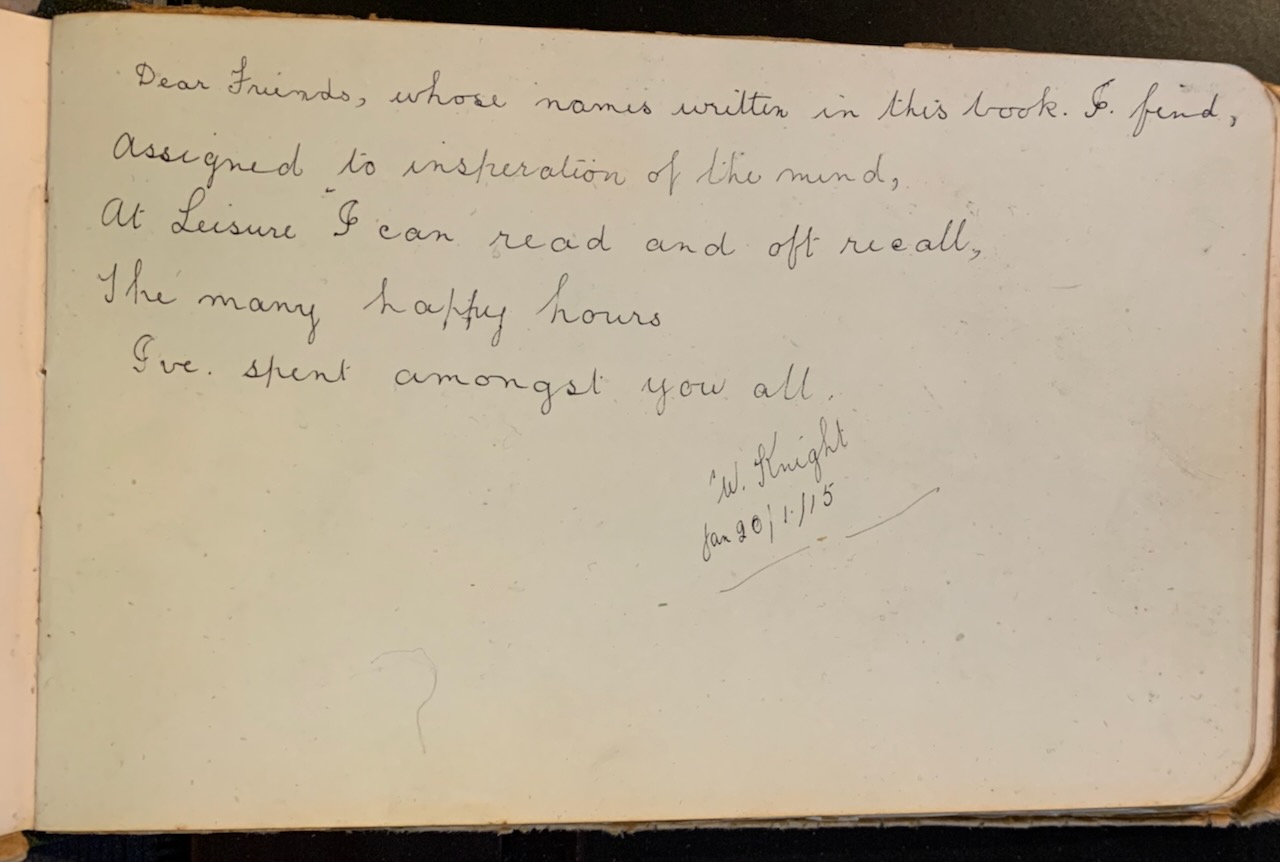 Dear Friends, whose names written in this book. I. find,
Assigned to insperation of the mind,
At Leisure I can read and oft recall,
The many happy hours
I've. spent amongst you all.
W. Knight
Jan 20/1/15